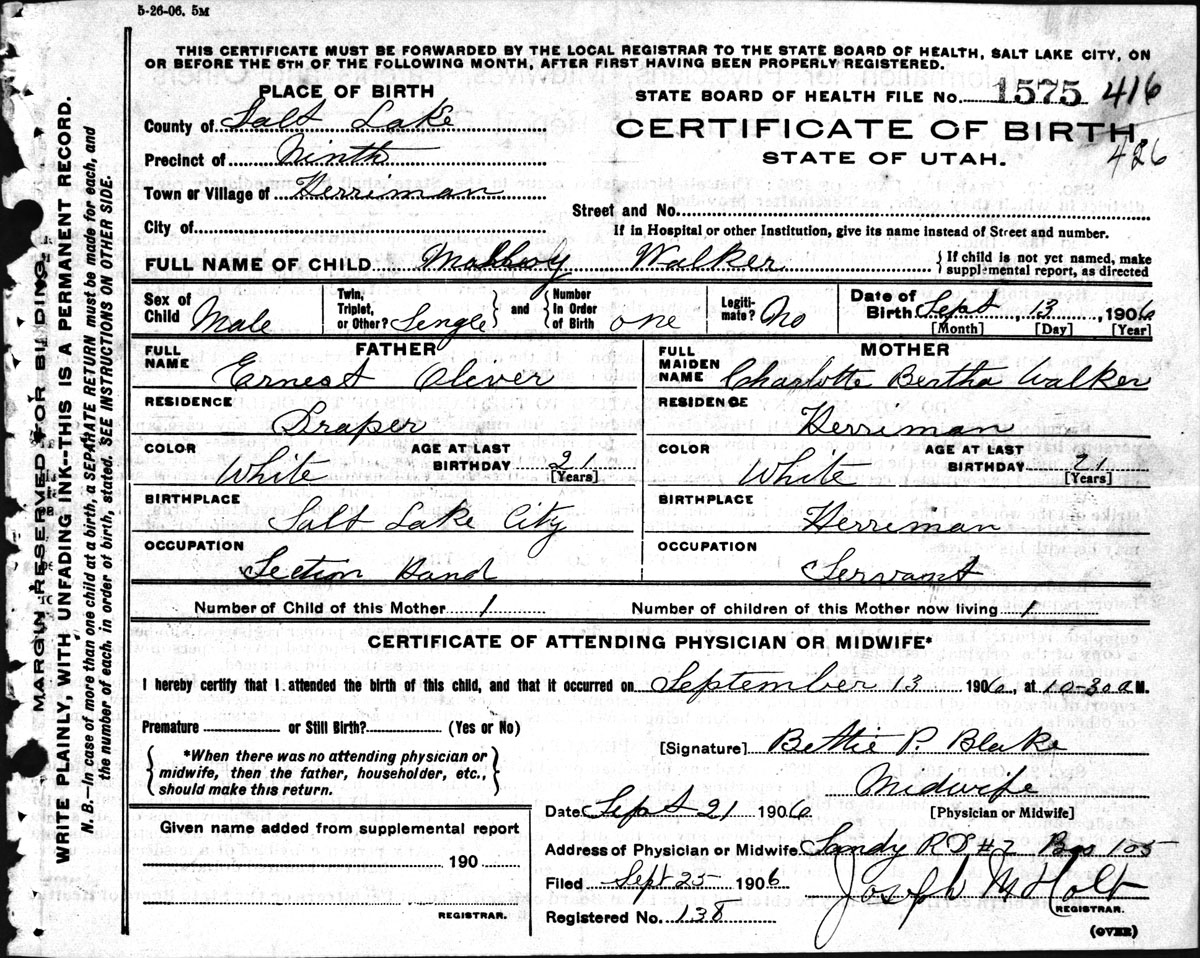 5-26-06. 5M
THIS CERTIFICATE MUST BE FORWARDED BY THE LOCAL REGISTRAR TO THE STATE BOARD OF HEALTH, SALT LAKE CITY, ON
OR BEFORE THE 5TH OF THE FOLLOWING MONTH, AFTER FIRST HAVING BEEN PROPERLY REGISTERED.
PLACE OF BIRTH
STATE BOARD OF HEALTH FILE No. 1575 416
County of Salt Lake
CERTIFICATE OF BIRTH.
Precinct of Ninth
STATE OF UTAH. 426
Town or Village of Herriman
Street and No.
City of
If in Hospital or other Institution, give its name instead of Street and number.
FULL NAME OF CHILD Walker { If child is not yet named, make supplemental report, as directed
Sex of Child Male Twin, Triplet, or Other? Single } and { Number In Order of Birth one Legitimate? No Date of Birth Sept, 13, 1906
[Month] [Day] [Year]
FATHER
FULL NAME Ernest Olever
RESIDENCE
Draper
COLOR AGE AT LAST
White BIRTHDAY 21
[Years]
BIRTHPLACE
Salt Lake City
OCCUPATION
Section Hand
MOTHER
FULL MAIDEN NAME Charlotte Bertha Walker
RESIDENCE
Herriman
COLOR AGE AT LAST
White BIRTHDAY 21
[Years]
BIRTHPLACE
Herriman
OCCUPATION
Servant
Number of Child of this Mother 1 Number of children of this Mother now living 1
CERTIFICATE OF ATTENDING PHYSICIAN OR MIDWIFE*
I hereby certify that I attended the birth of this child, and that it occurred on September 13 1906, at 10-30 a M.
Premature or Still Birth? (Yes or No)
{ *When there was no attending physician or
midwife, then the father, householder, etc.,
should make this return. }
[Signature] Bettie P. Blake
Midwife
Date Sept 21 1906 [Physician or Midwife]
Given name added from supplemental report
190
REGISTRAR.
Address of Physician or Midwife Sandy RD #2 Box 105
Filed Sept 25 1906 Joseph M Holt
REGISTRAR.
Registered No. 138
(OVER)
MARGIN RESERVED FOR BINDING.
WRITE PLAINLY, WITH UNFADING INK--THIS IS A PERMANENT RECORD.
N. B.—In case of more than one child at a birth, a SEPARATE RETURN must be made for each, and
the number of each, in order of birth, stated. SEE INSTRUCTIONS ON OTHER SIDE.